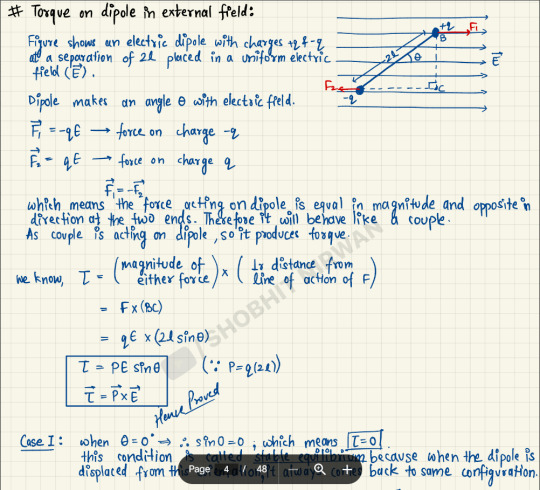 # Torque on dipole in external field:
Figure shows an electric dipole with charges +q & -q
at a separation of 2l placed in a uniform electric
field (E⃗).
Dipole makes an angle θ with electric field.
F⃗₁ = -qE → force on charge -q
F⃗₂ = qE → force on charge q
F⃗₁ = -F⃗₂
which means the force acting on dipole is equal in magnitude and opposite in
direction at the two ends. Therefore it will behave like a couple.
As couple is acting on dipole, so it produces torque.
we know, τ = (magnitude of either force) × (⊥r distance from line of action of F)
= F × (BC)
= qE × (2l sinθ)
τ = PE sinθ (∵ P = q(2l))
τ⃗ = P⃗ × E⃗
Hence Proved
Case I: when θ = 0° ⇒ ∴ sin0 = 0, which means τ = 0
this condition is called stable equilibrium because when the dipole is
displaced from this it always comes back to same configuration.
+q
F₁
B
2l
θ
E⃗
F₂
C
-q
SHOBHIT NIRWAN
Page 4 / 48